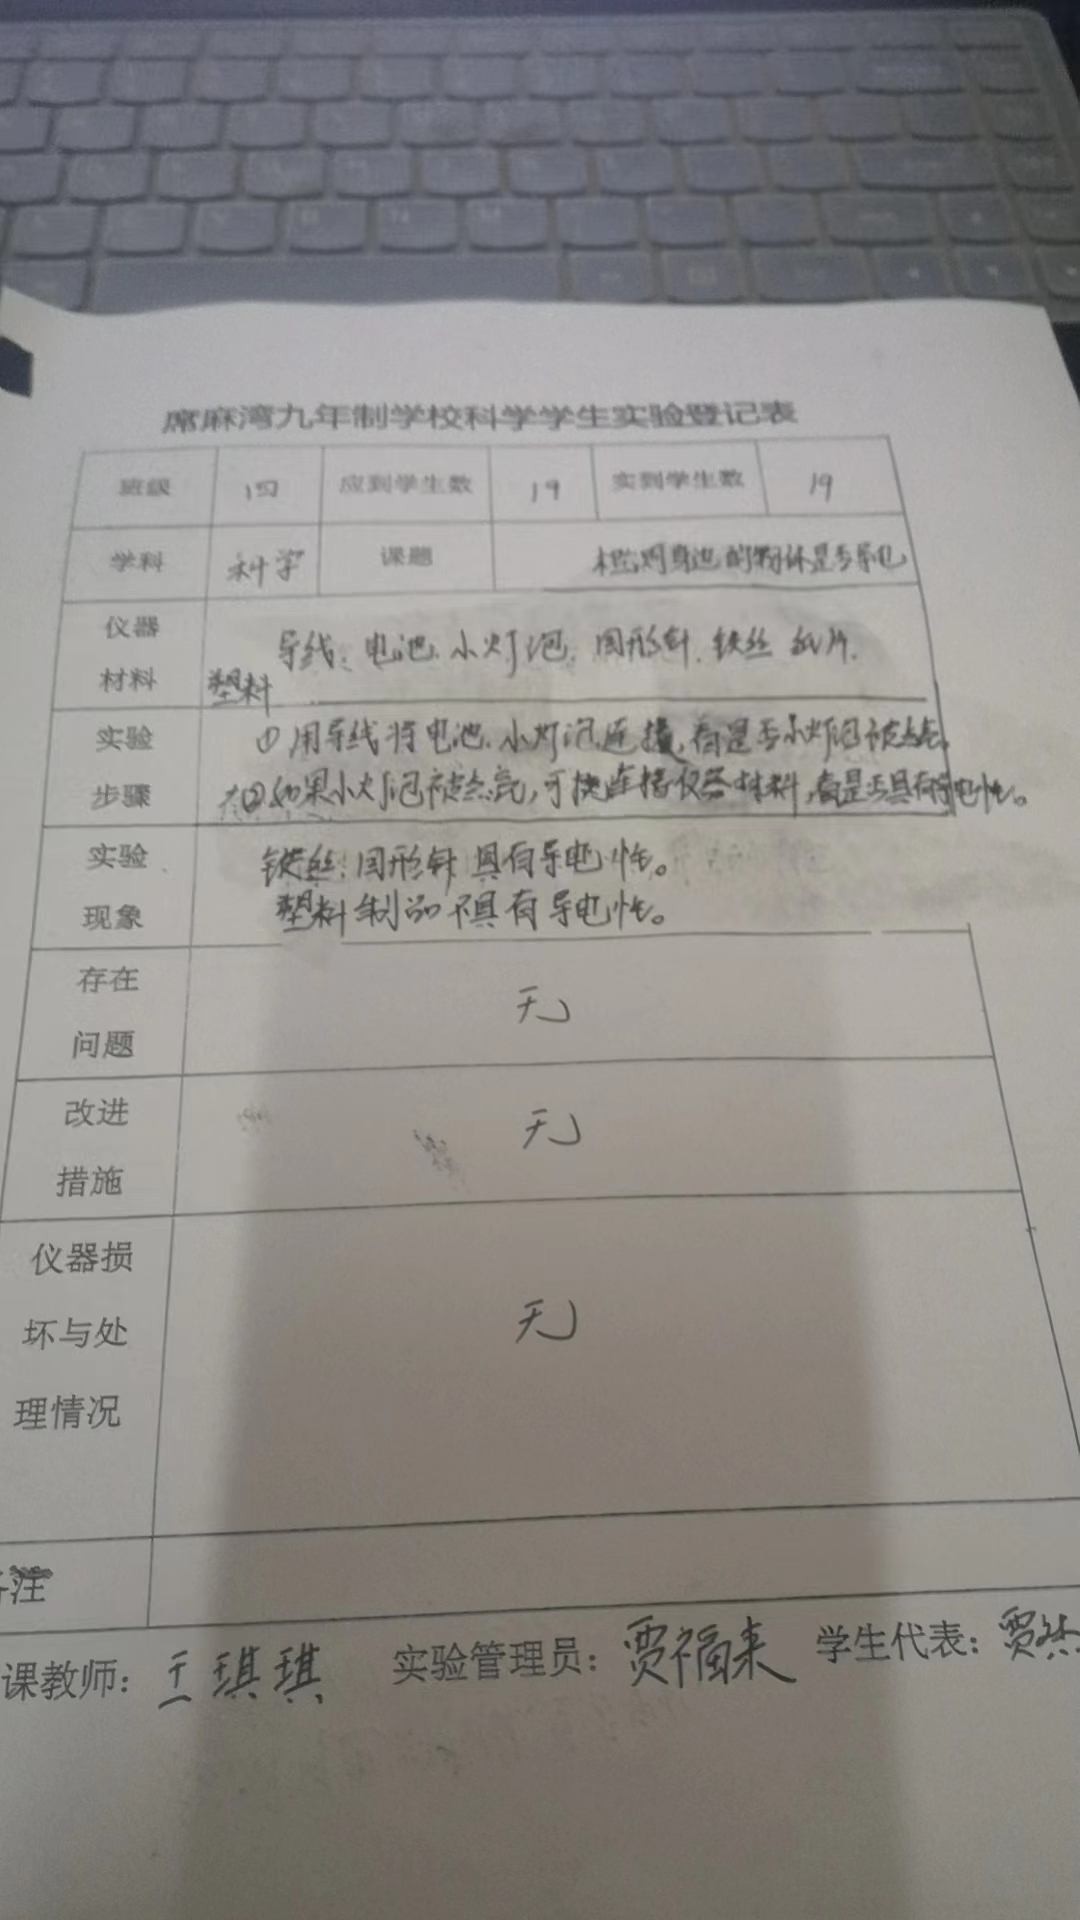 席麻湾九年制学校科学学生实验登记表
班级 四 应到学生数 19 实到学生数 19
学科 科学 课题 检测身边的物体是否导电
仪器材料 导线、电池、小灯泡、回形针、铁丝 纸片、
塑料
实验步骤 ①用导线将电池、小灯泡连接,看是否小灯泡被点亮。
②如果小灯泡被点亮,可 连接仪器材料,看是否具有导电性。
实验现象 铁丝、回形针 具有导电性。
塑料制品不具有导电性。
存在问题 无
改进措施 无
仪器损坏与处理情况 无
注
课教师:王琪琪 实验管理员:贾福来 学生代表:贾